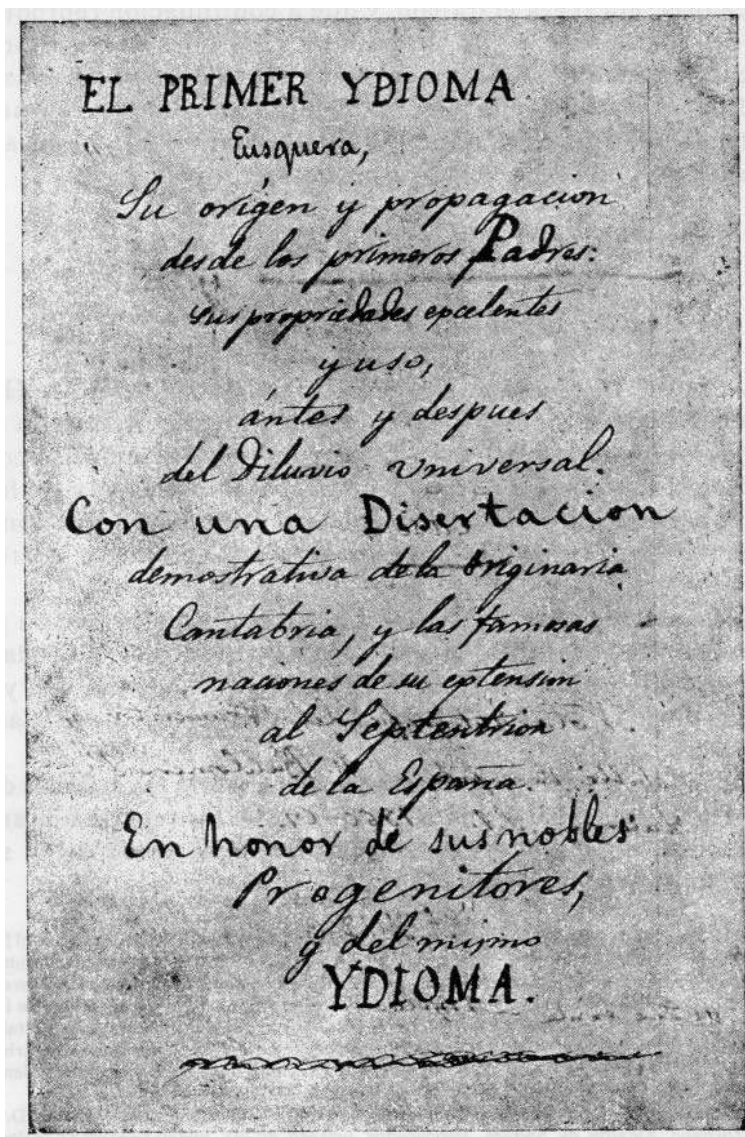 EL PRIMER YDIOMA
Eusquera,
Su orígen y propagacion
desde los primeros Padres:
sus propriedades excelentes
y uso,
ántes y despues
del Diluvio universal.
Con una Disertacion
demostrativa de la originaria
Cantabria, y las famosas
naciones de su extension
al Septentrion
de la España.
En honor de sus nobles
Progenitores,
y del mismo
YDIOMA.